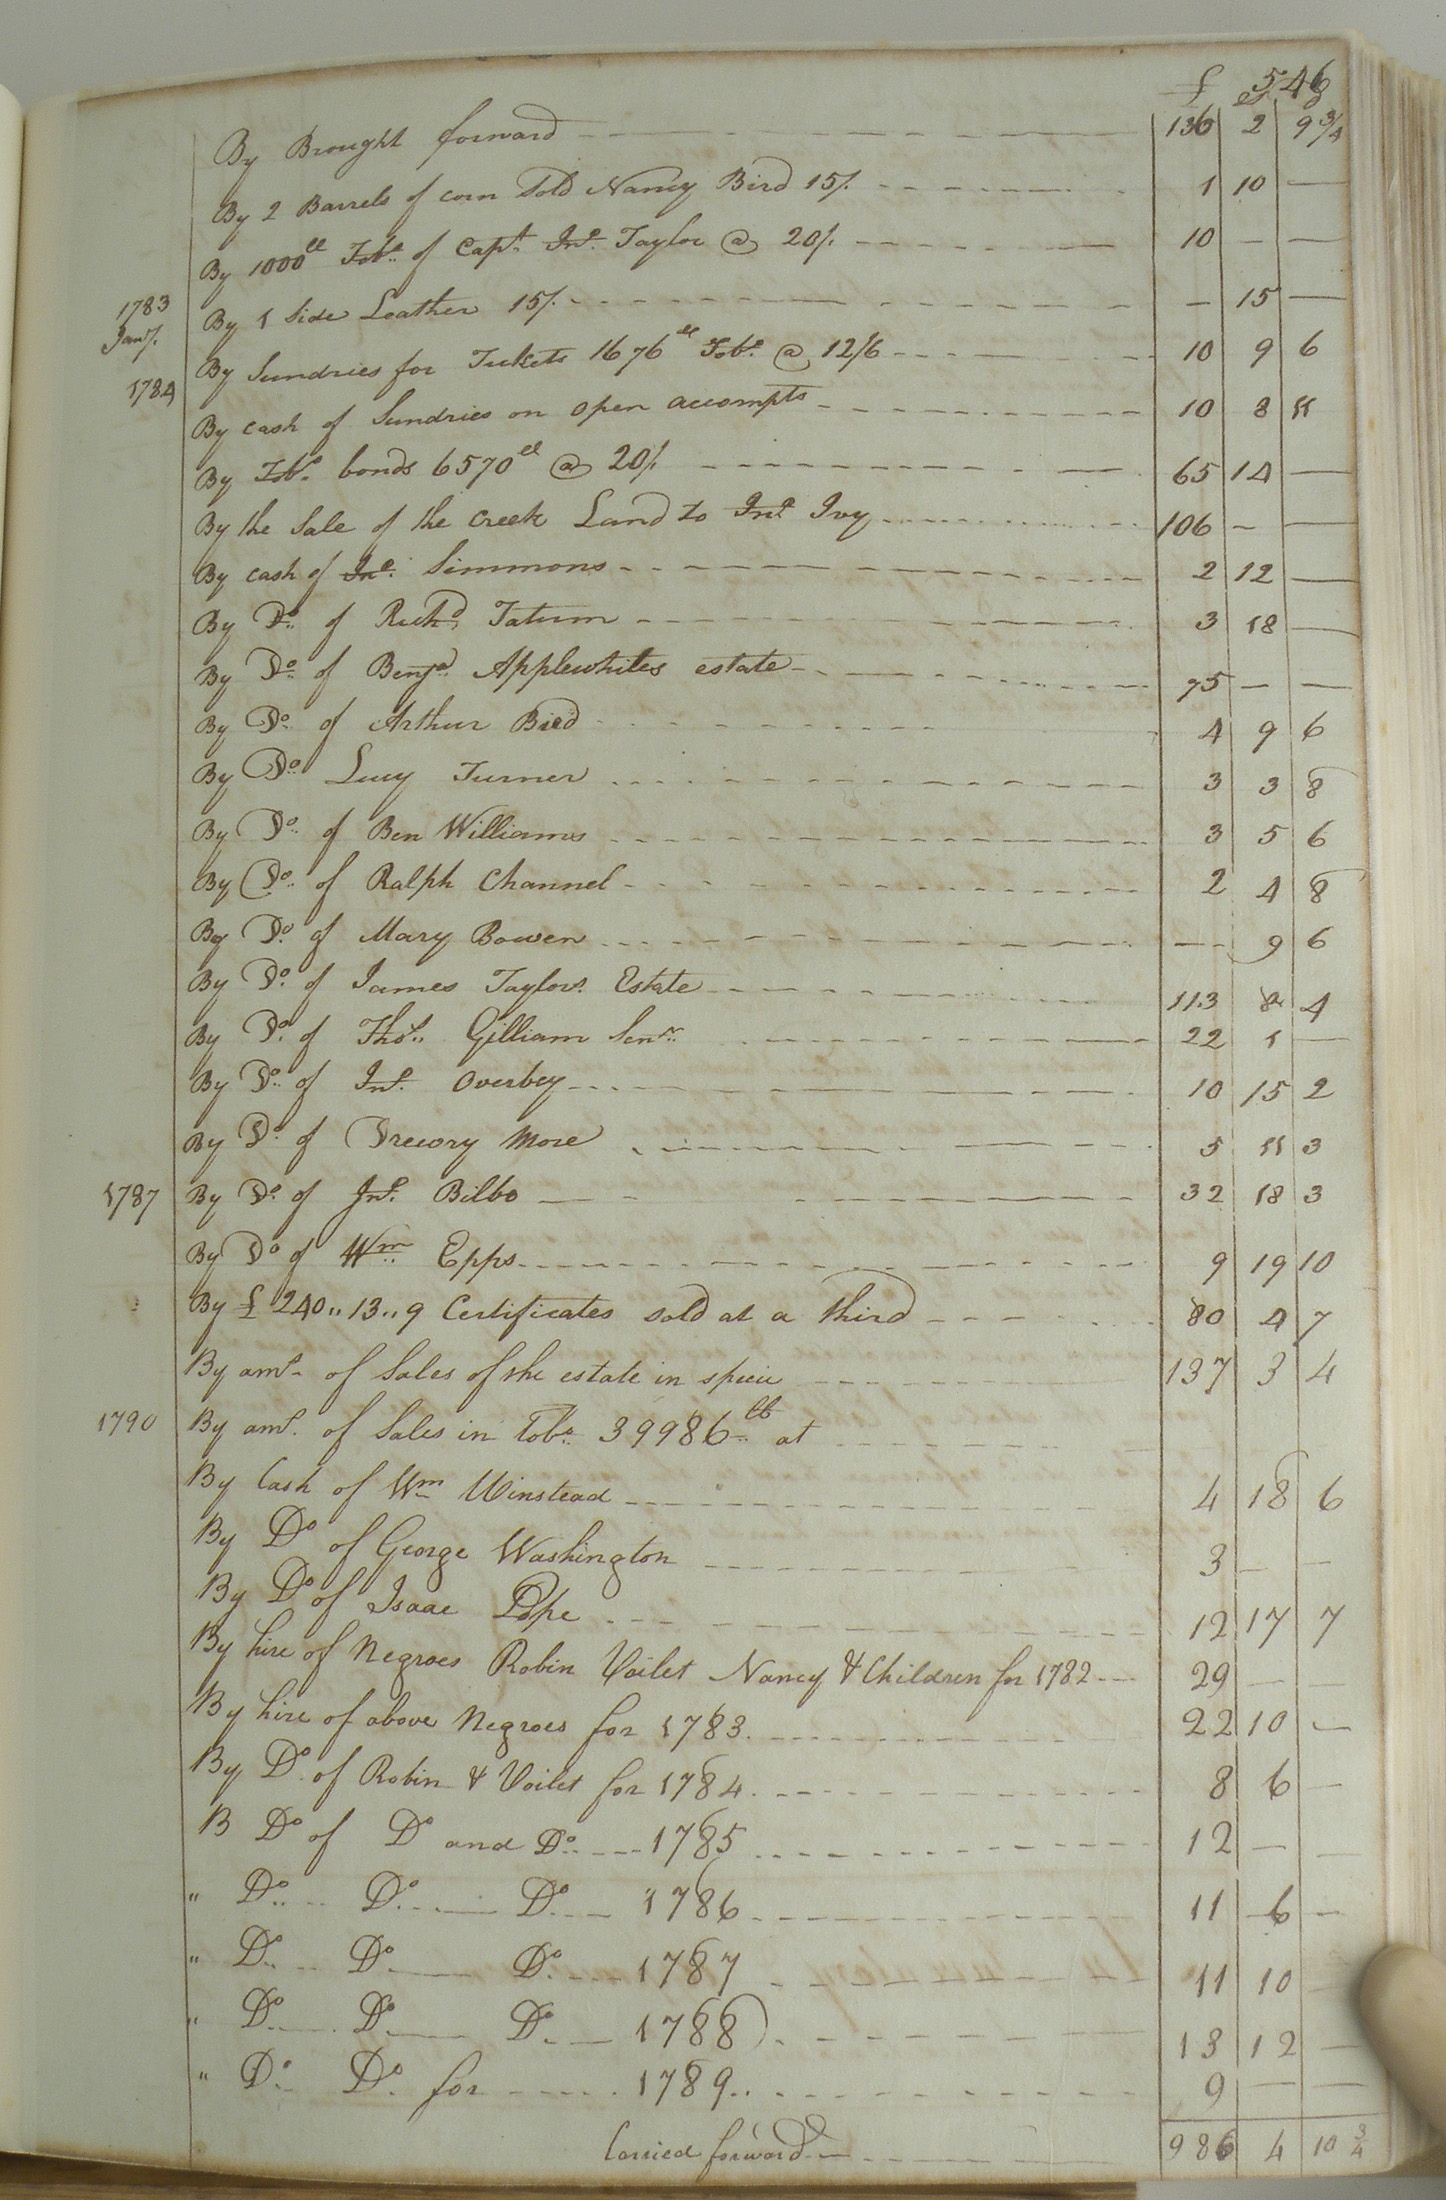 546
£ s d
By Brought forward 136 2 9 3/4
By 2 Barrels of corn Sold Nancy Bird 15/. 1 10 —
By 1000ll Tobo. of Capt. Jno. Taylor @ 20/. 10 — —
1783 By 1 Side Leather 15/. — 15 —
Jany. By Sundries for Tickets 1676ll Tobo. @ 12/6 10 9 6
1784 By cash of Sundries on open accompts 10 8 11
By Tobo. bonds 6570ll @ 20/. 65 14 —
By the Sale of the creek Land to Jno. Ivy 106 — —
By cash of Jno. Simmons 2 12 —
By Do. of Richd. Tatum 3 18 —
By Do. of Benja. Applewhites estate 75 — —
By Do. of Arthur Bird 4 9 6
By Do. Lucy Turner 3 3 8
By Do. of Ben Williams 3 5 6
By Do. of Ralph Channel 2 4 8
By Do. of Mary Bowen — 9 6
By Do. of James Taylors. Estate 113 4
By Do. of Thos. Gilliam Senr. 22 1 —
By Do. of Jno. Overbey 10 15 2
By Do. of Drewry More 5 11 3
1787 By Do. of Jno. Bilbo 32 18 3
By Do of Wm. Epps 9 19 10
By £ 240,,13,,9 Certificates sold at a third 80 4 7
By amt. of Sales of the estate in specie 137 3 4
1790 By amt. of Sales in Tobo. 39986lb at
By Cash of Wm Winstead 4 18 6
By Do of George Washington 3 — —
By Do of Isaac Pope 12 17 7
By hire of Negroes Robin Voilet Nancy & Children for 1782 29 — —
By hire of above Negroes for 1783. 22 10 —
By Do. of Robin & Voilet for 1784. 8 6 —
B Do of Do and Do. 1785 12 — —
" Do. Do. Do. 1786 11 6 —
" Do. Do. Do. 1787 11 10
" Do. Do. Do. 1788 13 12 —
" Do. Do. for 1789. 9 — —
Carried forward 986 4 10 3/4